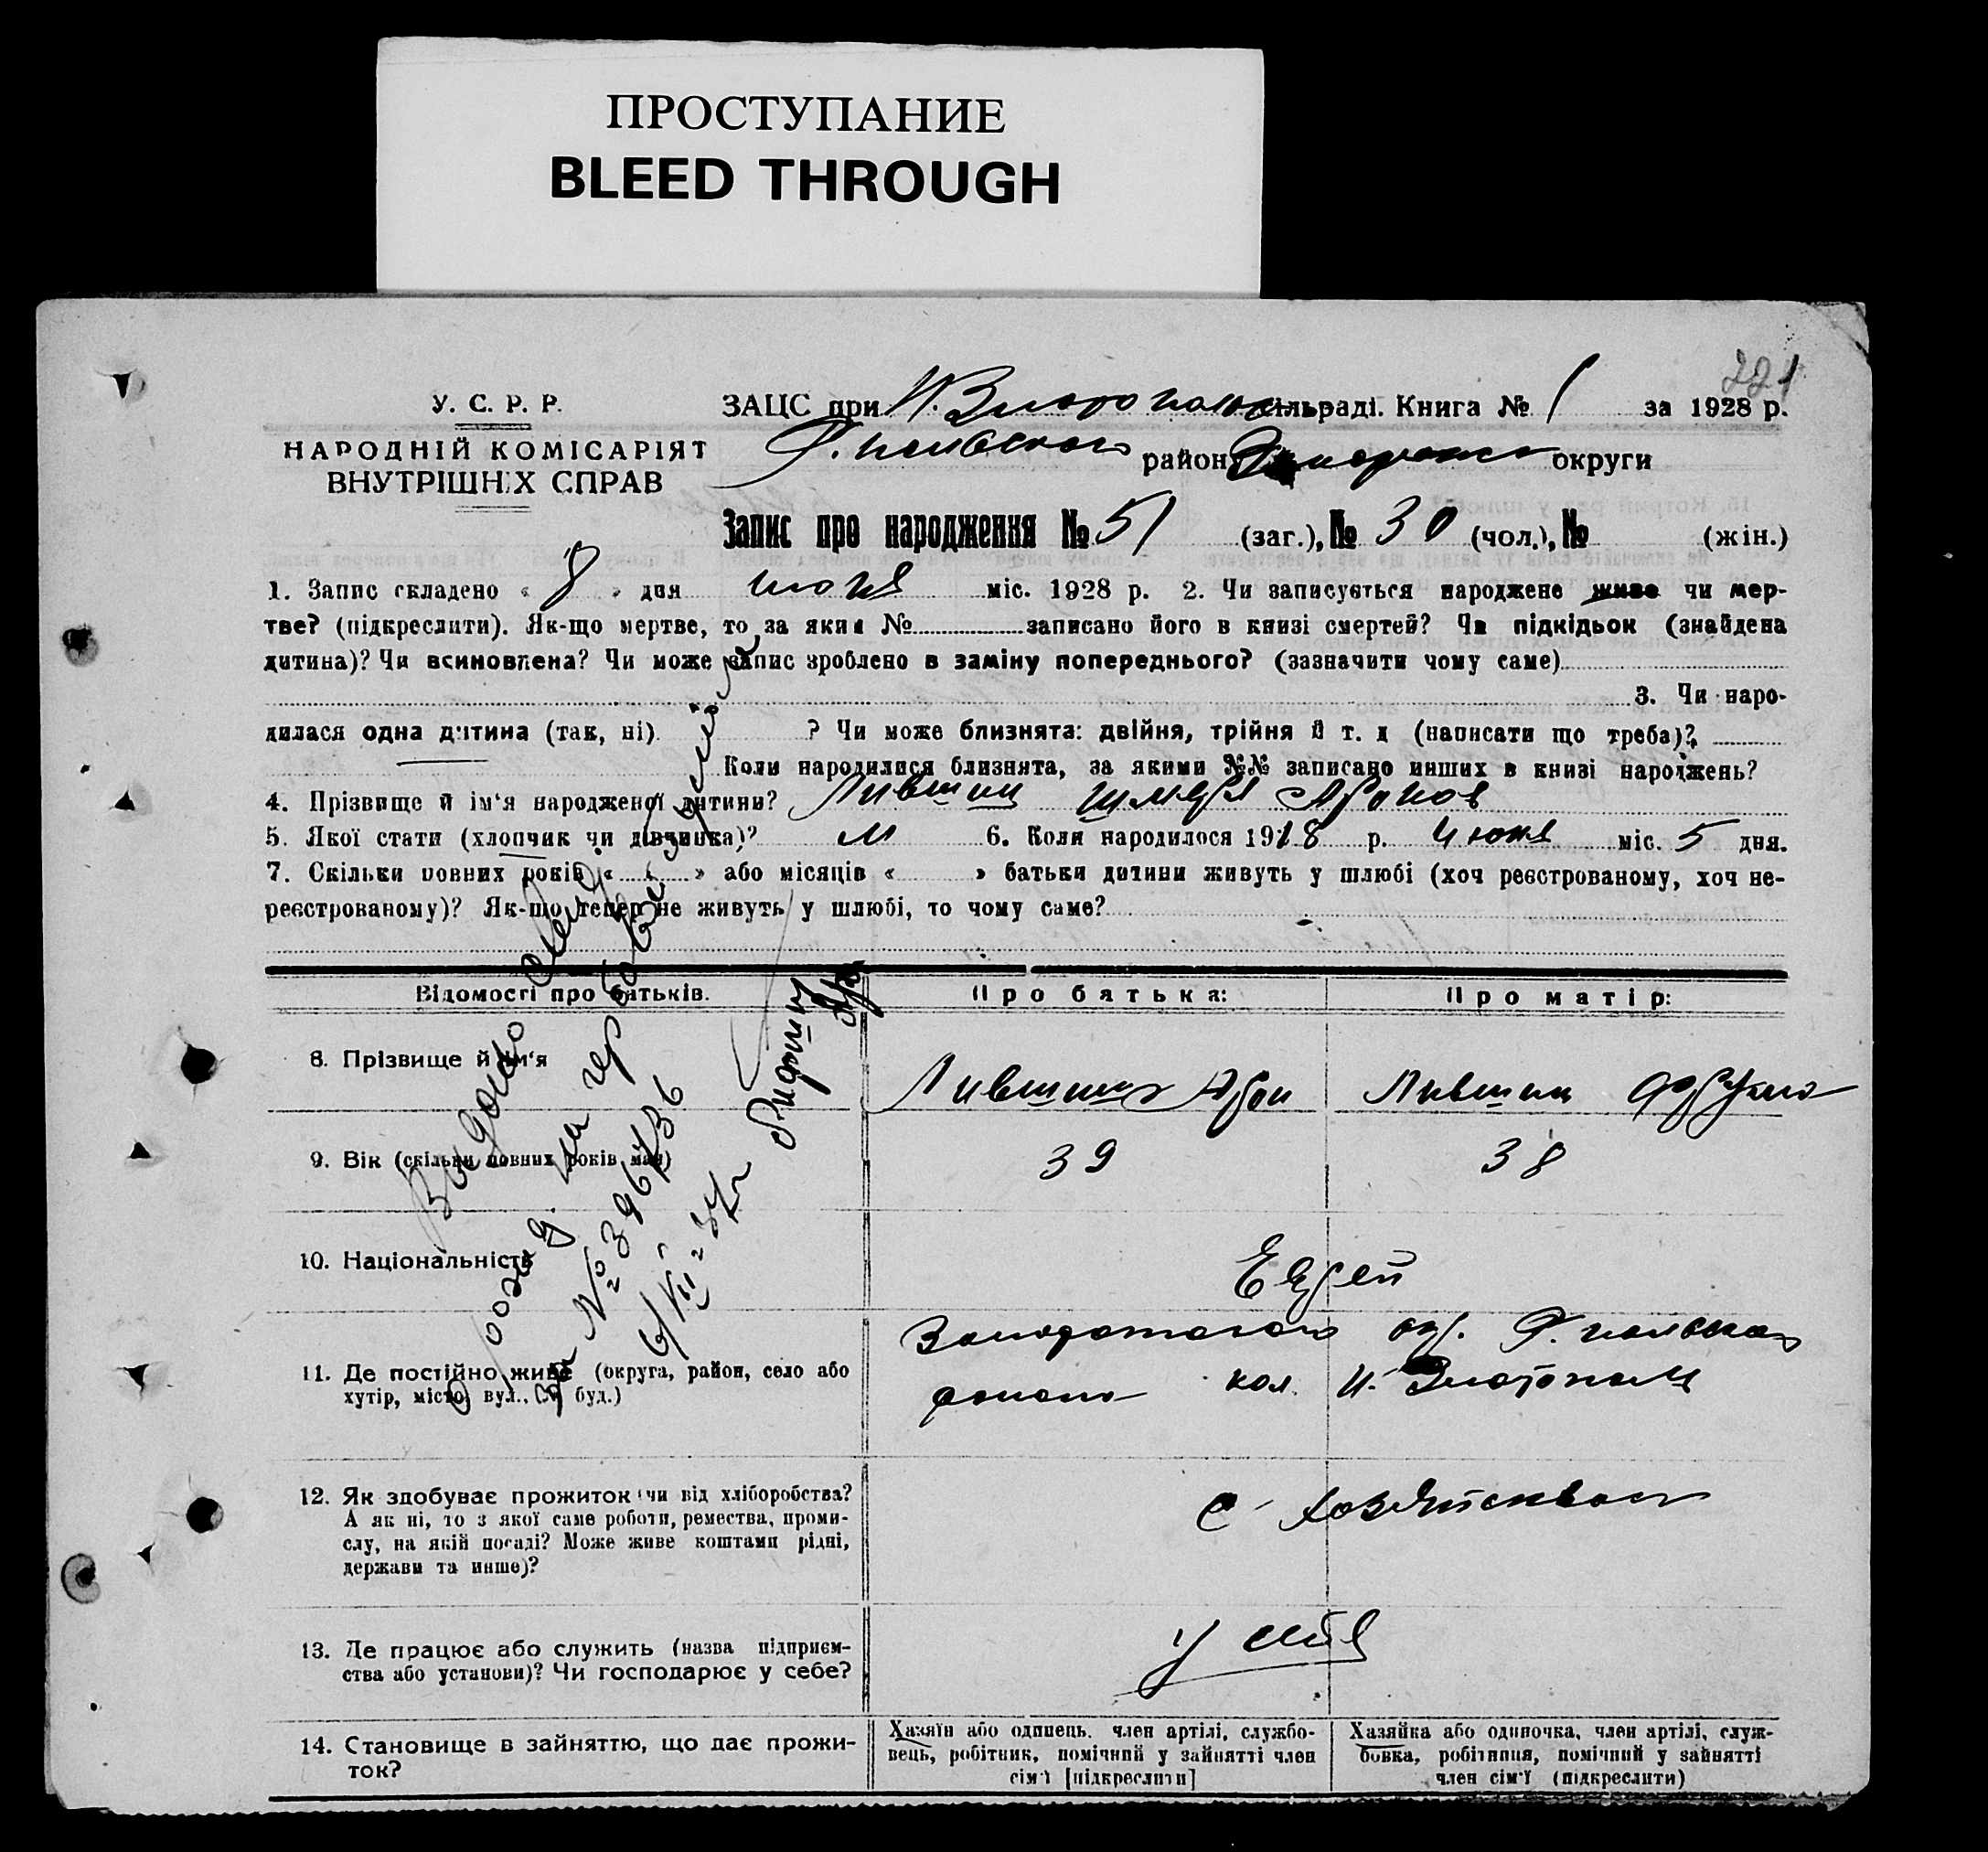 ПРОСТУПАНИЕ
BLEED THROUGH
221
У. С. Р. Р.
НАРОДНІЙ КОМІСАРІЯТ
ВНУТРІШНІХ СПРАВ
ЗАЦС при Н. Златополь сільраді. Книга № 1 за 1928 р.
району округи
Запис про народження № 51 (заг.), № 30 (чол.), № (жін.)
1. Запис складено « 8 » дня июня міс. 1928 р. 2. Чи записується народжене живе чи мер-
тве? (підкреслити). Як-що мертве, то за яким № записано його в книзі смертей? Чи підкідьок (знайдена
дитина)? Чи всиновлена? Чи може запис зроблено в заміну попереднього? (зазначити чому саме)
3. Чи наро-
дилася одна дитина (так, ні) ? Чи може близнята: двійня, трійня й т. д (написати що треба)?
Коли народилися близнята, за якими №№ записано инших в книзі народжень?
4. Прізвище й ім'я народженої дитини? Лившиц Шмера Аронов
5. Якої стати (хлопчик чи дівчинка)? М 6. Коли народилося 1928 р. июня міс. 5 дня.
7. Скільки повних років « » або місяців « » батьки дитини живуть у шлюбі (хоч реєстрованому, хоч не-
реєстрованому)? Як-що тепер не живуть у шлюбі, то чому саме?
Відомості про батьків. Про батька: Про матір:
8. Прізвище й ім'я Лившиц Арон Лившиц
9. Вік (скільки повних років має) 39 38
10. Національність Еврей
11. Де постійно живе (округа, район, село або
хутір, місто, вул., № буд.)
кол. Н. Златополь
12. Як здобуває прожиток (чи від хліборобства?
А як ні, то з якої саме роботи, ремества, проми-
слу, на якій посаді? Може живе коштами рідні,
держави та инше)?
С хозяйством
13. Де працює або служить (назва підприєм-
ства або установи)? Чи господарює у себе?
У себя
14. Становище в зайняттю, що дає прожи-
ток?
Хазяїн або одинець, член артілі, службо-
вець, робітник, помічний у зайнятті член
сім'ї [підкреслити]
Хазяйка або одиночка, член артілі, служ-
бовка, робітниця, помічний у зайнятті
член сім'ї (підкреслити)
Выдано
№ 396736